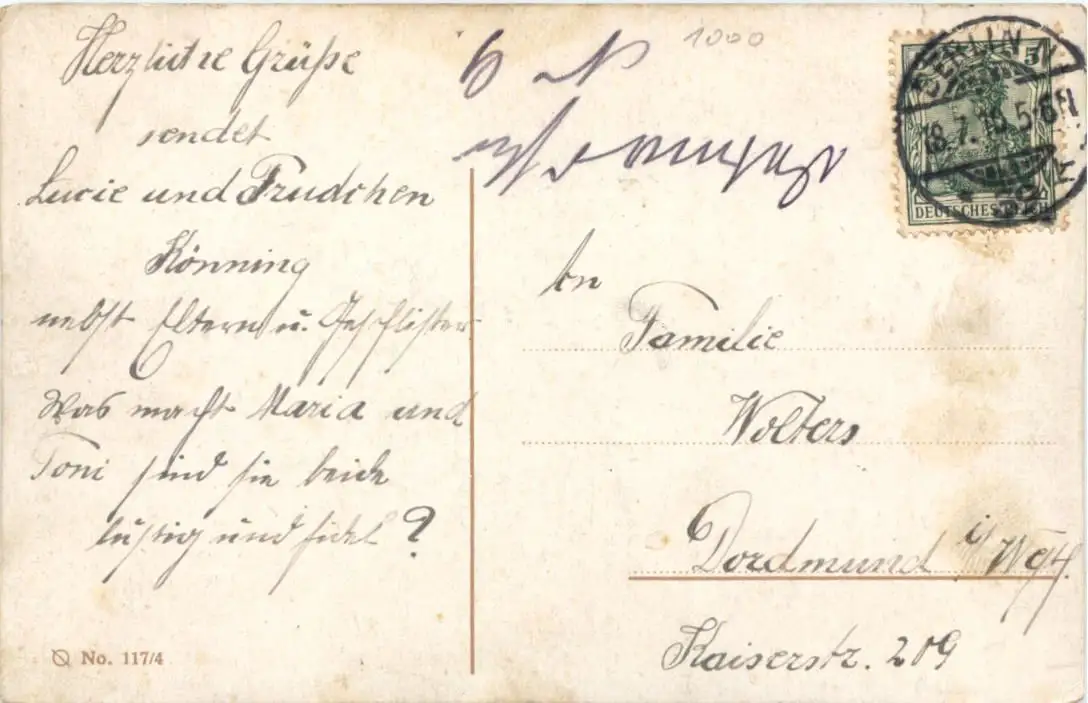 Herzliche Grüße
sendet
Lucie und Trudchen
Könning
nebst Eltern u. Geschwister
Was macht Maria und
Toni sind sie beide
lustig und fidel?
No. 117/4
1000
BERLIN
18.7. 5-6N
5
DEUTSCHES REICH
An
Familie
Wolters
Dordmund i/Wstf.
Kaiserstr. 209